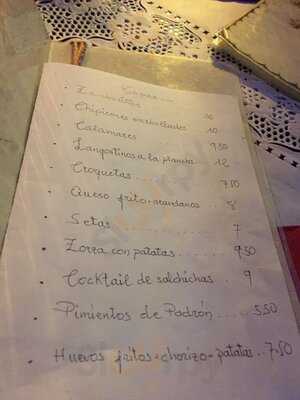 Chipirones encebollados 10
Calamares 9,50
Langostinos a la plancha .. 12
Croquetas ........ 7,50
Queso frito-arandanos .. 8
Setas ............ 7
Zorza con patatas ....... 9,50
Cocktail de salchichas . . . 9
Pimientos de Padrón .... 5,50
Huevos fritos - chorizo - patatas .. 7,50